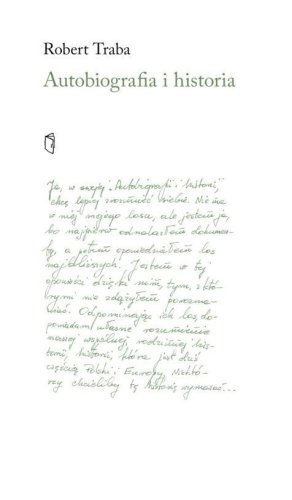 Robert Traba
Autobiografia i historia
Ja, w swojej „Autobiografii i historii",
chcę lepiej zrozumieć siebie. Nie ma
w niej mojego losu, ale jestem ja,
bo najpierw odnalazłem dokumen-
ty, a potem opowiedziałem los
najbliższych. Jestem w tej
opowieści dzięki nim, tym, z któ-
rymi nie zdążyłem porozma-
wiać. Odpominając ich los, do-
powiadam własne rozumienie
naszej wspólnej rodzinnej his-
torii, historii, która jest dziś
częścią Polski i Europy. Niektó-
rzy chcieliby tę historię wymazać...